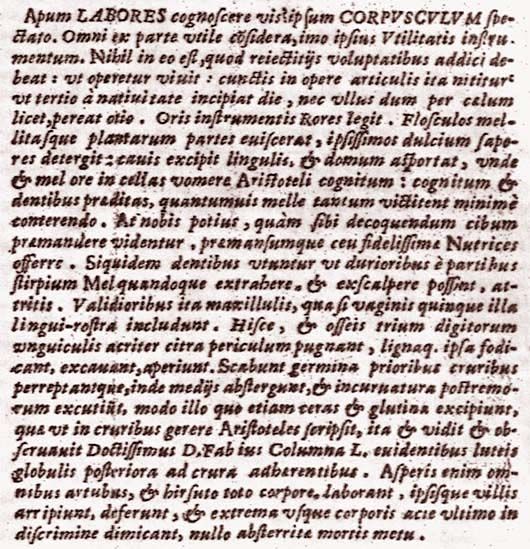 Apum LABORES cognoscere vis: ipsum CORPVSCVLVM spe-
ctato. Omni ex parte vtile cõsidera, imo ipsius Vtilitatis instru-
mentum. Nihil in eo est, quod reiectitijs voluptatibus addici de-
beat: vt operetur viuit: cunctis in opere articulis ita nititur
vt tertio à natiuitate incipiat die, nec vllus dum per cælum
licet, pereat otio. Oris instrumentis Rores legit. Flosculos mel-
litasque plantarum partes euiscerat, ipsissimos dulcium sapo-
res detergit: cauis excipit lingulis, & domum asportat, vnde
& mel ore in cellas vomere Aristoteli cognitum: cognitum &
dentibus præditas, quantumuis melle tantum victitent minimè
conterendo. At nobis potius, quàm sibi decoquendum cibum
præmandere videntur, præmansumque ceu fidelissimæ Nutrices
offerre. Siquidem dentibus vtuntur vt durioribus è partibus
stirpium Mel quandoque extrahere, & exscalpere possent, at-
tritis. Validioribus ita maxillulis, quasi vaginis quinque illa
lingui-rostra includunt. Hisce, & osseis trium digitorum
vnguiculis acriter citra periculum pugnant, lignaq. ipsa fodi-
cant, excauant, aperiunt. Scabunt germina prioribus cruribus
perreptantque, inde medijs abstergunt, & incuruatura postremo-
rum excutiũt, modo illo quo etiam ceras & glutina excipiunt,
quæ vt in cruribus gerere Aristoteles scripsit, ita & vidit & ob-
seruauit Doctissimus D. Fabius Columna L. euidentibus luteis
globulis posteriora ad crura adhærentibus. Asperis enim om-
nibus artubus, & hirsuto toto corpore laborant, ipsisque villis
arripiunt, deferunt, & extrema vsque corporis acie vltimo in
discrimine dimicant, nullo absterritæ mortis metu.